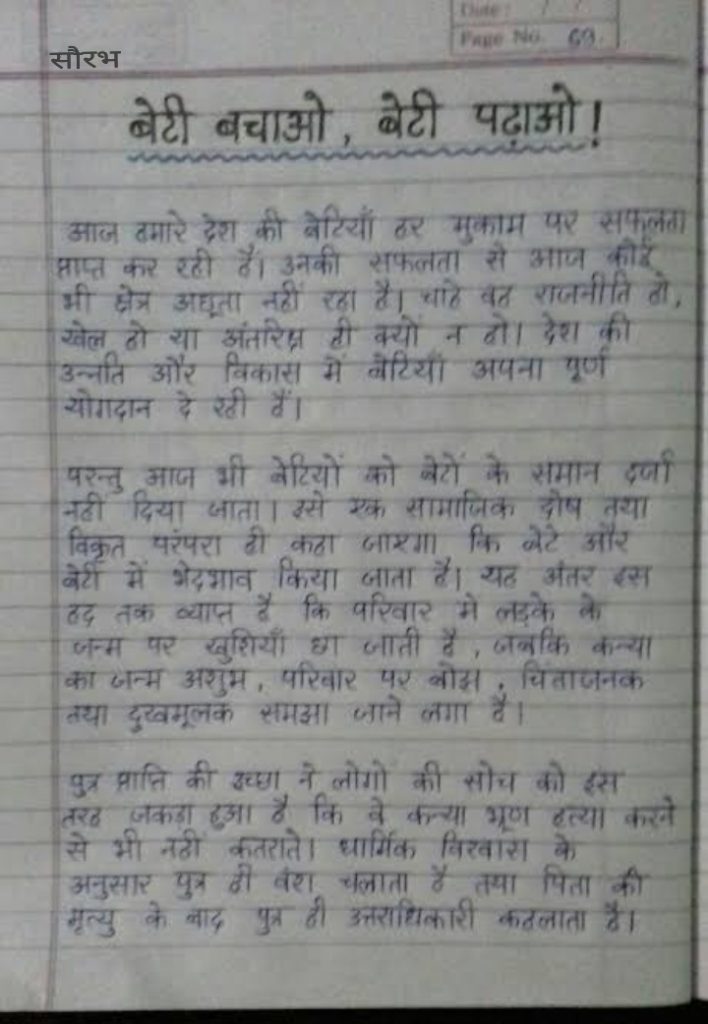 Date: / /
Page No. 69.
सौरभ
बेटी बचाओ, बेटी पढ़ाओ!
आज हमारे देश की बेटियाँ हर मुकाम पर सफलता
प्राप्त कर रही हैं। उनकी सफलता से आज कोई
भी क्षेत्र अछूता नहीं रहा है। चाहे वह राजनीति हो,
खेल हो या अंतरिक्ष ही क्यों न हो। देश की
उन्नति और विकास में बेटियाँ अपना पूर्ण
योगदान दे रही हैं।
परन्तु आज भी बेटियों को बेटों के समान दर्जा
नहीं दिया जाता। इसे एक सामाजिक दोष तथा
विकृत परंपरा ही कहा जाएगा कि बेटे और
बेटी में भेदभाव किया जाता है। यह अंतर इस
हद तक व्याप्त है कि परिवार मे लड़के के
जन्म पर खुशियाँ छा जाती है, जबकि कन्या
का जन्म अशुभ, परिवार पर बोझ, चिंताजनक
तथा दुखमूलक समझा जाने लगा है।
पुत्र प्राप्ति की इच्छा ने लोगों की सोच को इस
तरह जकड़ा हुआ है कि वे कन्या भ्रूण हत्या करने
से भी नहीं कतराते। धार्मिक विश्वास के
अनुसार पुत्र ही वंश चलाता है तथा पिता की
मृत्यु के बाद पुत्र ही उत्तराधिकारी कहलाता है।